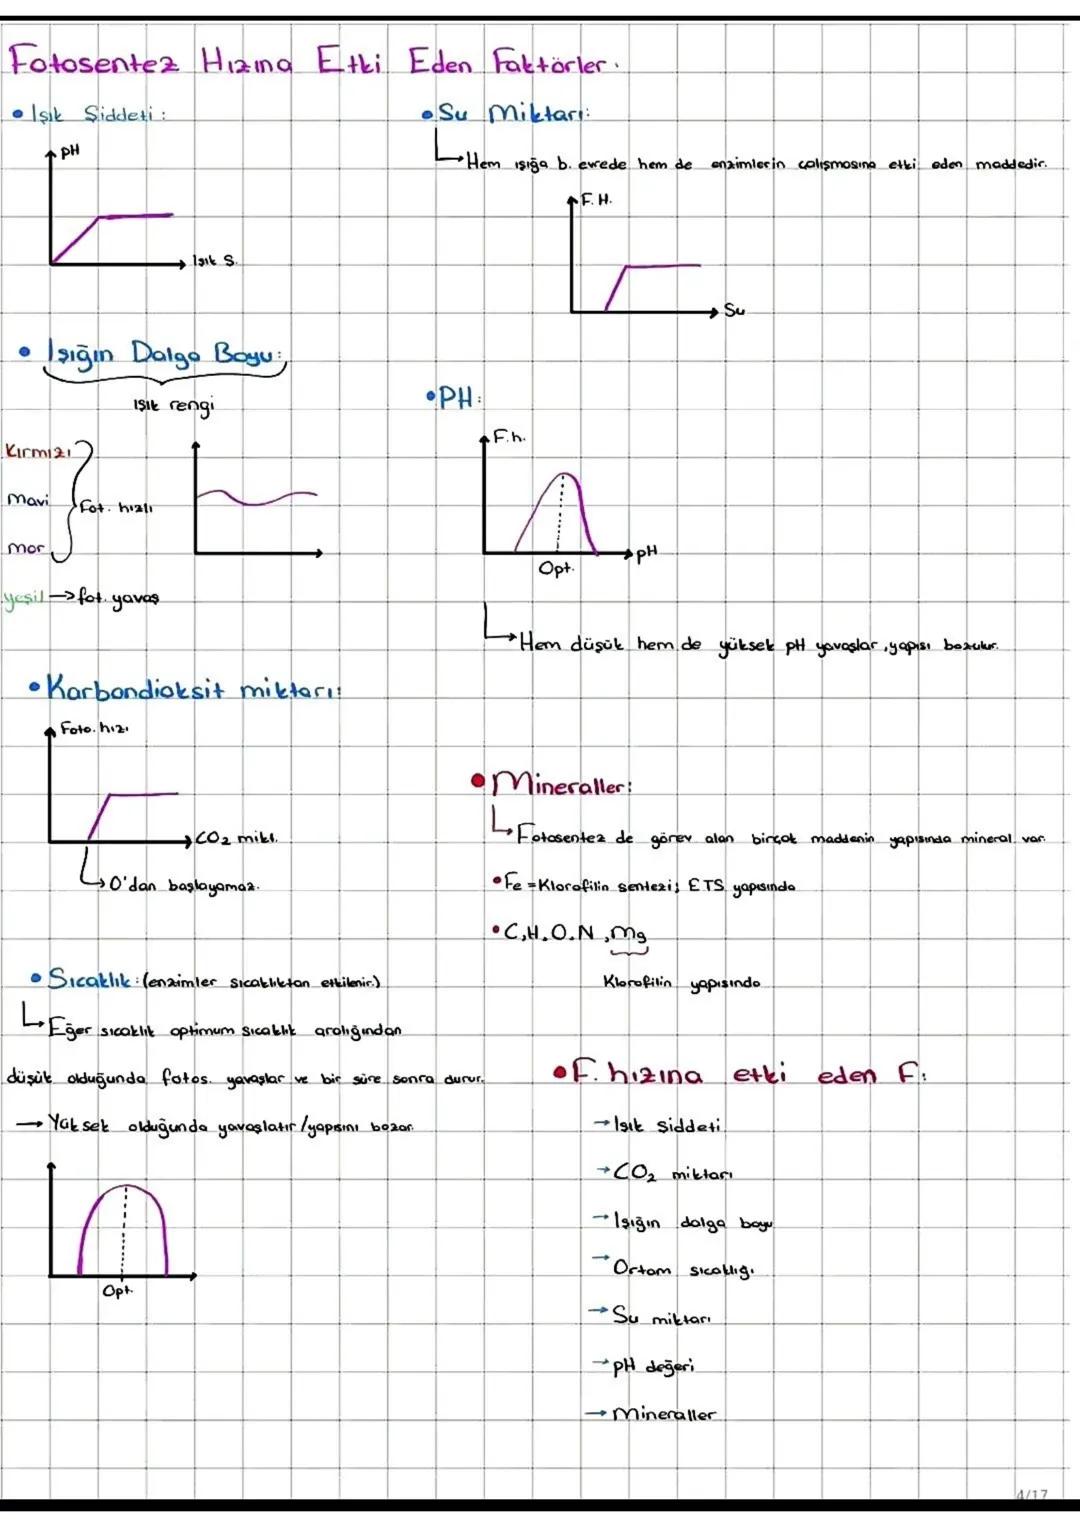 Fotosentez Hızına Etki Eden Faktörler.
• Işık Şiddeti:
pH
Işık Ş.
• Işığın Dalga Boyu:
Işık rengi
Kırmızı
Mavi
mor
Fot. hızlı
yeşil → fot. yavaş
• Karbondioksit miktarı:
Foto. hızı
CO₂ mikt.
0'dan başlayamaz.
• Sıcaklık: (enzimler sıcaklıktan etkilenir.)
Eğer sıcaklık optimum sıcaklık aralığından
düşük olduğunda fotos. yavaşlar ve bir süre sonra durur.
→ Yüksek olduğunda yavaşlatır/yapısını bozar.
Opt.
• Su Miktarı:
Hem ışığa b. evrede hem de enzimlerin çalışmasına etki eden maddedir.
F.H.
Su
• PH:
F.h.
pH
Opt.
Hem düşük hem de yüksek pH yavaşlar, yapısı bozulur.
• Mineraller:
Fotosentez de görev alan birçok maddenin yapısında mineral var.
• Fe = Klorofilin sentezi; ETS yapısında
• C,H,O,N,Mg
Klorofilin yapısında
• F. hızına etki eden F:
→ Işık şiddeti
→ CO₂ miktarı
→ Işığın dalga boyu
→ Ortam sıcaklığı
→ Su miktarı
→ pH değeri
→ Mineraller
4/17